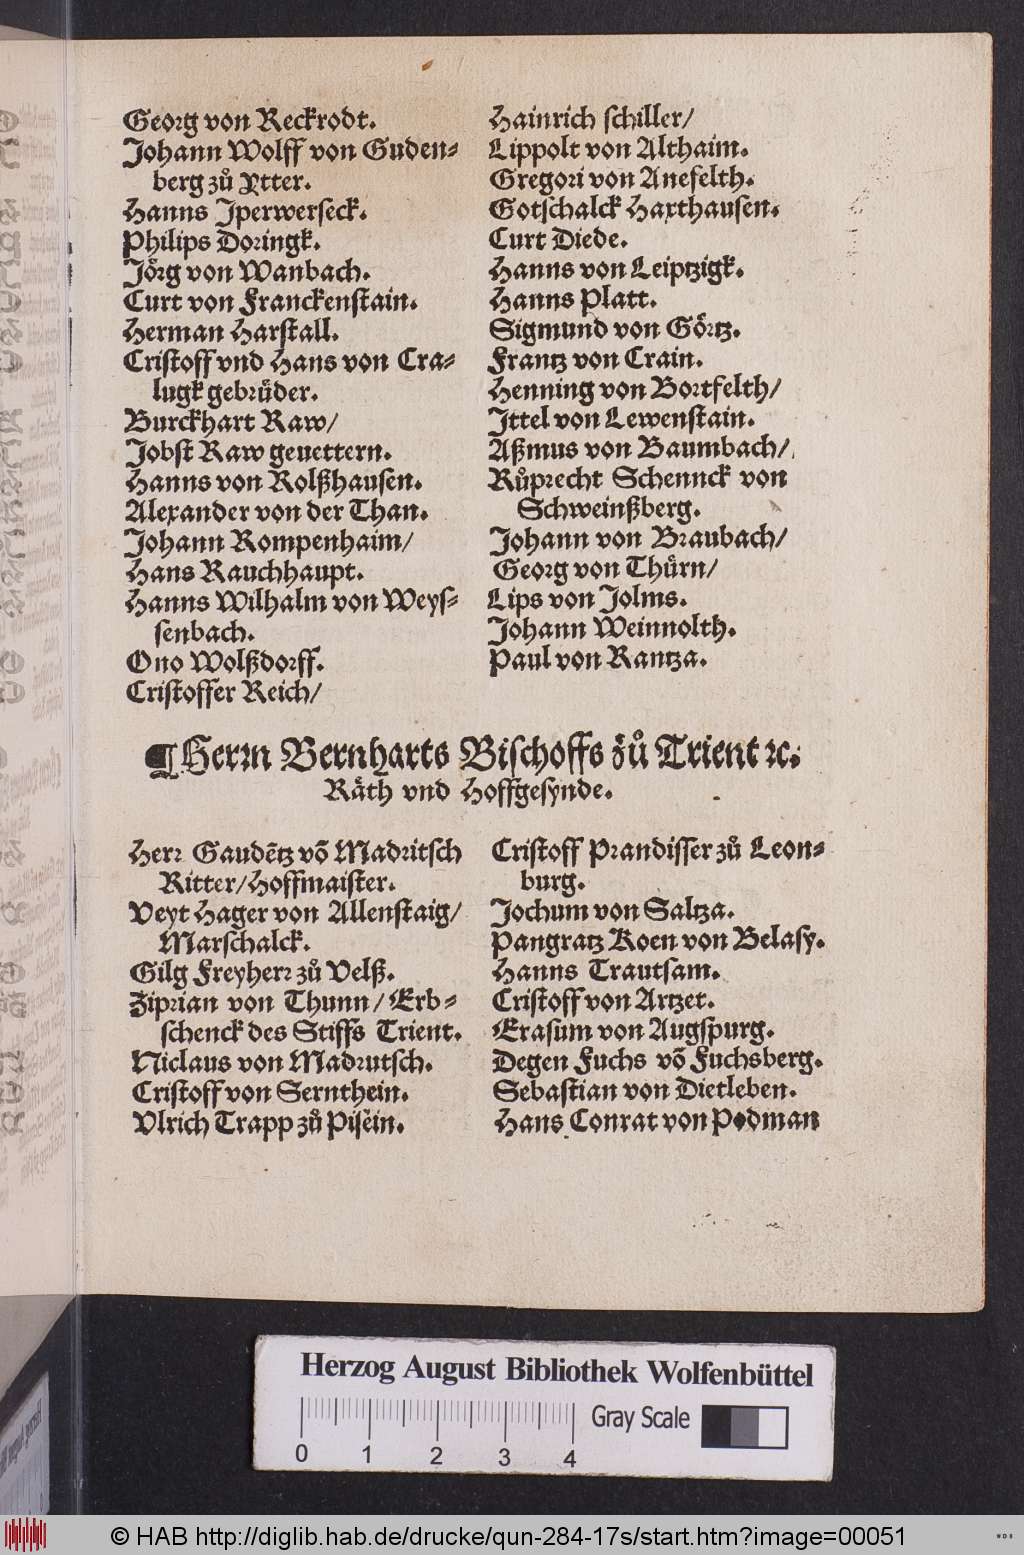 Georg von Reckrodt.
Johann Wolff von Guden⸗
berg zuͦ Ytter.
Hanns Iperwerseck.
Philips Doringk.
Joͤrg von Wanbach.
Curt von Franckenstain.
Herman Harstall.
Cristoff vnd Hans von Cra⸗
lugk gebruͤder.
Burckhart Raw/
Jobst Raw geuettern.
Hanns von Rolßhausen.
Alexander von der Than.
Johann Rompenhaim/
Hans Rauchhaupt.
Hanns Wilhalm von Weys⸗
senbach.
Ono Wolßdorff.
Cristoffer Reich/
Hainrich schiller/
Lippolt von Althaim.
Gregori von Anefelth.
Gotschalck Haxthausen.
Curt Diede.
Hanns von Leiptzigk.
Hanns Platt.
Sigmund von Goͤrtz.
Frantz von Crain.
Henning von Bortfelth/
Ittel von Lewenstain.
Aßmus von Baumbach/
Ruͦprecht Schennck von
Schweinßberg.
Johann von Braubach/
Georg von Thuͤrn/
Lips von Jolms.
Johann Weinnolth.
Paul von Rantza.
¶ Herrn Bernharts Bischoffs zuͦ Trient ꝛc.
Raͤth vnd Hoffgesynde.
Herr Gaudētz vō Madritsch
Ritter/Hoffmaister.
Veyt Hager von Allenstaig/
Marschalck.
Gilg Freyherr zuͦ Velß.
Ziprian von Thunn/Erb⸗
schenck des Stiffs Trient.
Niclaus von Madrutsch.
Cristoff von Sernthein.
Vlrich Trapp zuͦ Pisein.
Cristoff Prandisser zuͦ Leon⸗
burg.
Jochum von Saltza.
Pangratz Koen von Belasy.
Hanns Trautsam.
Cristoff von Artzet.
Erasum von Augspurg.
Degen Fuchs vō Fuchsberg.
Sebastian von Dietleben.
Hans Conrat von Podman
Herzog August Bibliothek Wolfenbüttel
Gray Scale
0 1 2 3 4
© HAB http://diglib.hab.de/drucke/qun-284-17s/start.htm?image=00051